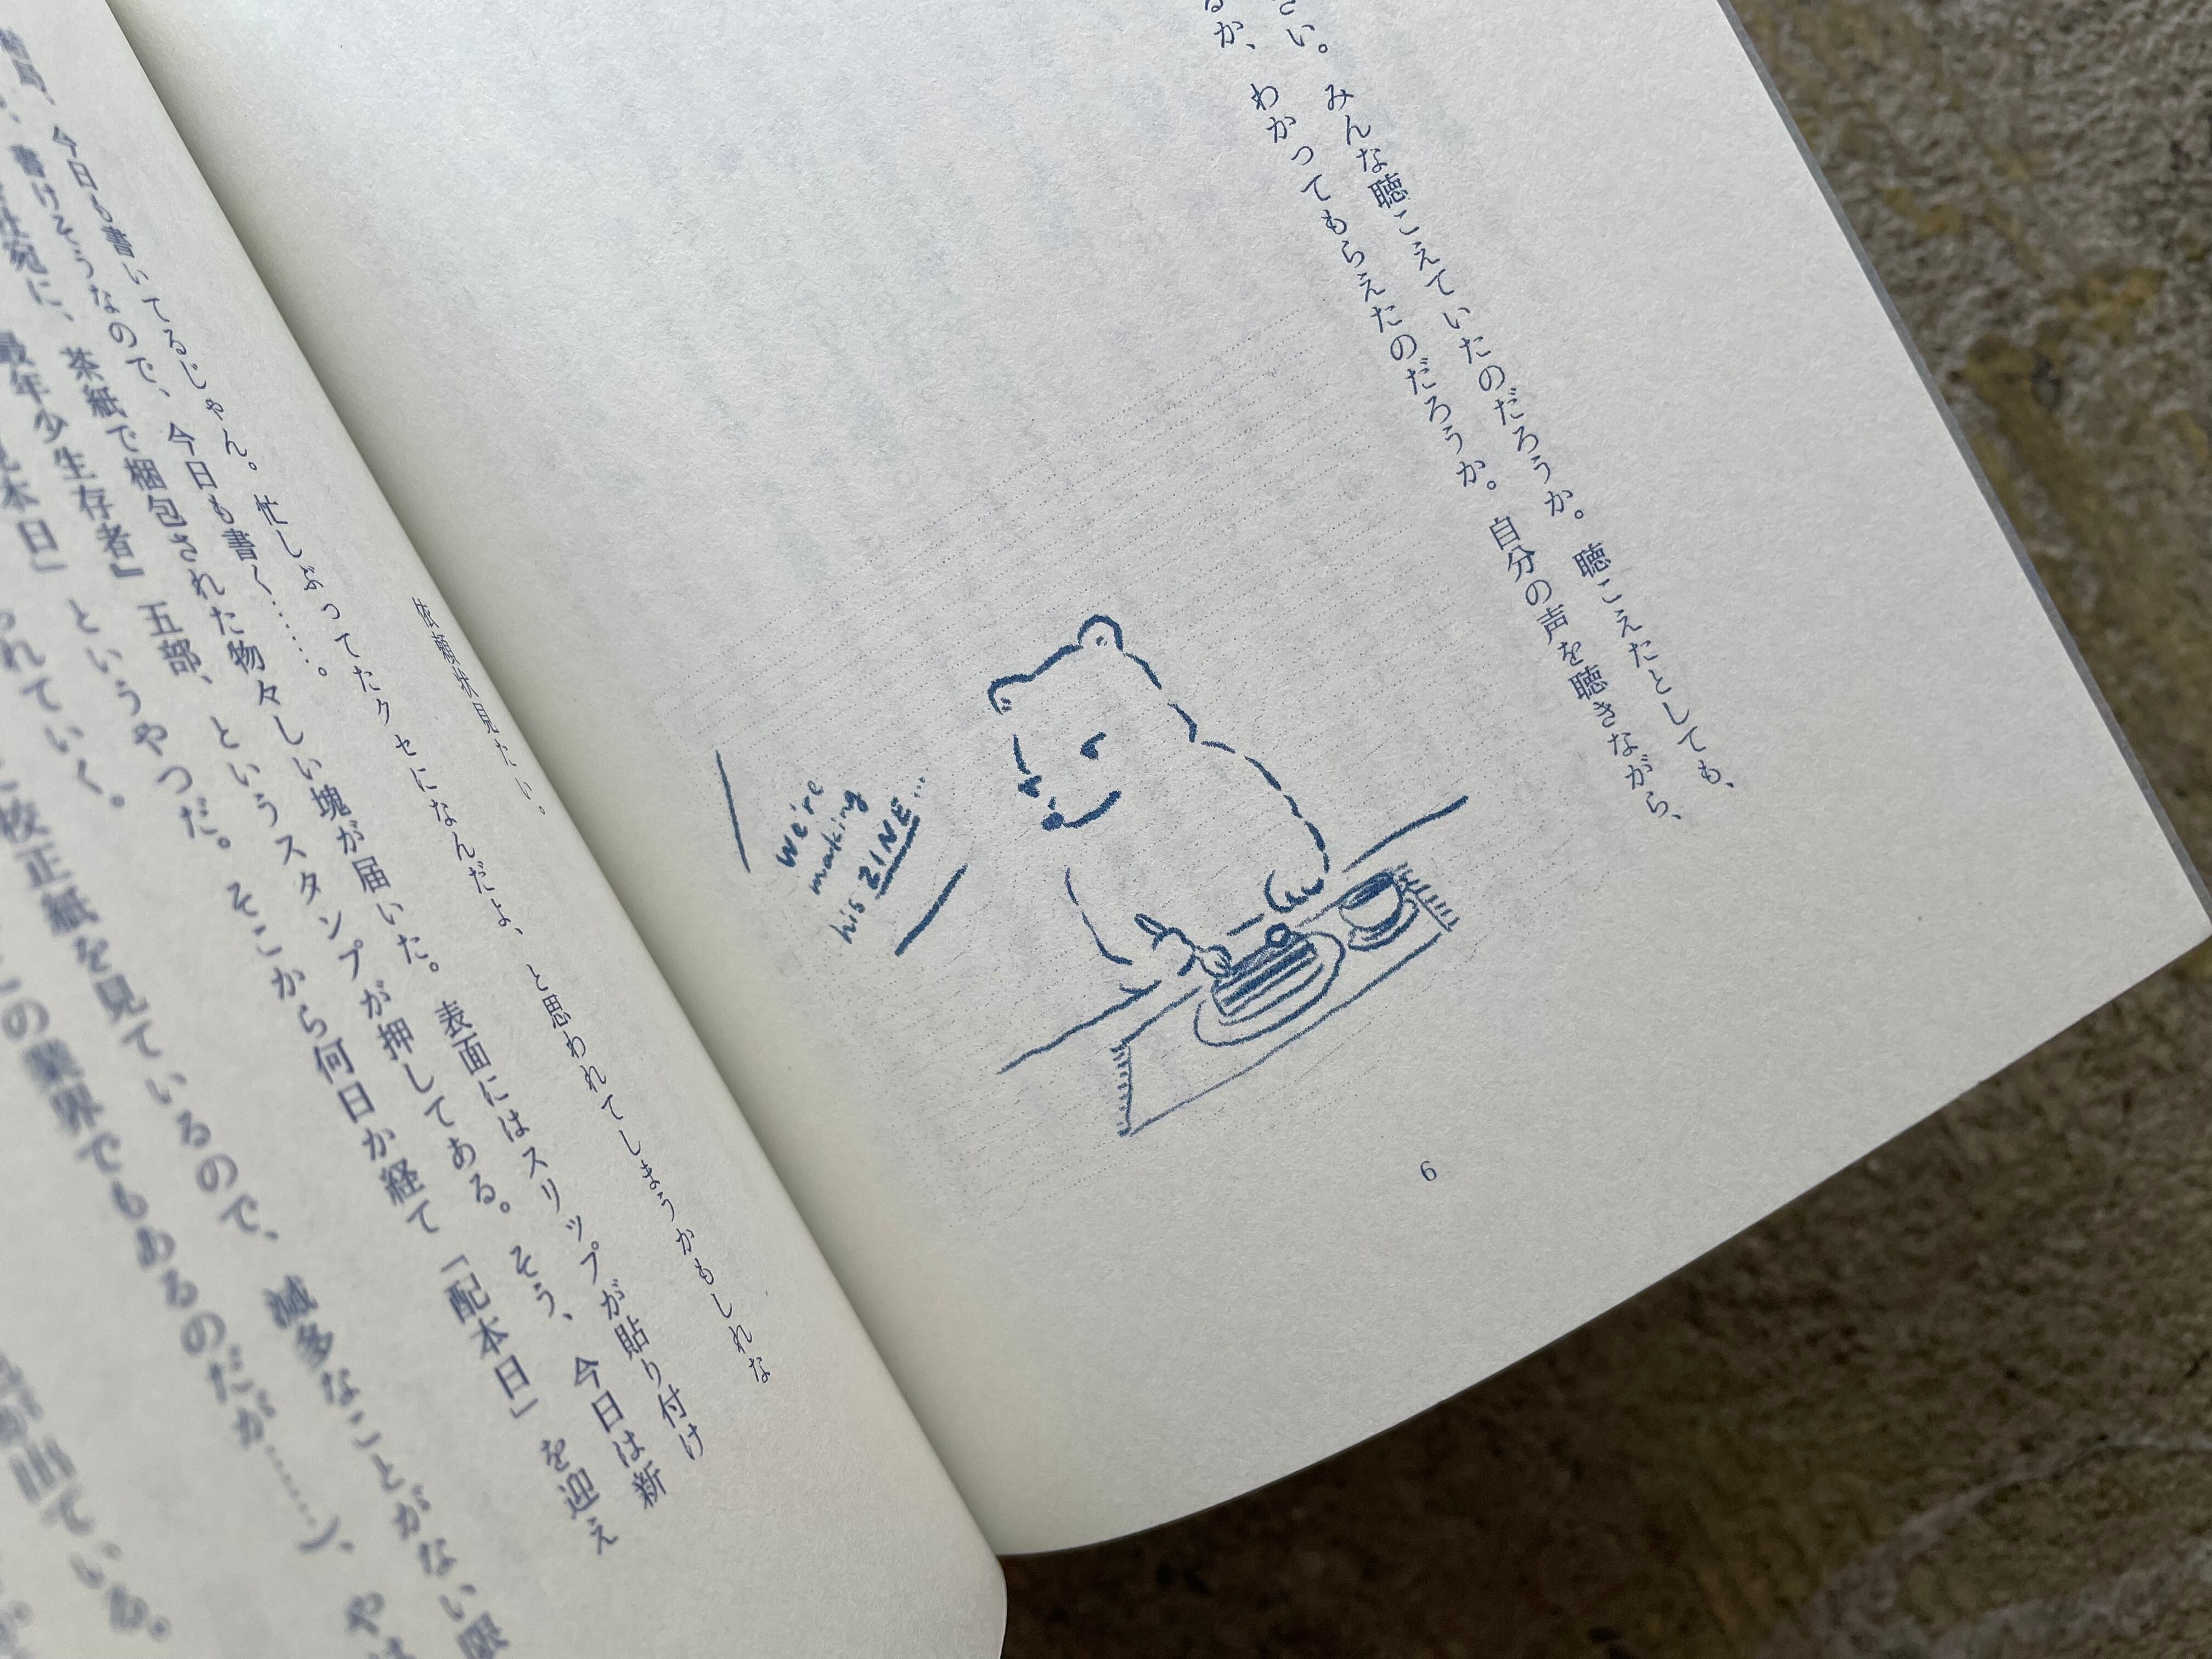 い。みんな聴こえていたのだろうか。聴こえたとしても、
るか、わかってもらえたのだろうか。自分の声を聴きながら、
we're
making
his ZINE...
6
依頼状見たい。
今日も書いてるじゃん。忙しぶってたクセになんだよ、と思われてしまうかもしれな
書けそうなので、今日も書く……。
に、茶紙で梱包された物々しい塊が届いた。表面にはスリップが貼り付け
最年少生存者』五部、というスタンプが押してある。そう、今日は新
見本日」というやつだ。そこから何日か経て「配本日」を迎え
られていく。
校正紙を見ているので、滅多なことがない限
この業界でもあるのだが……)、やは
出ている。